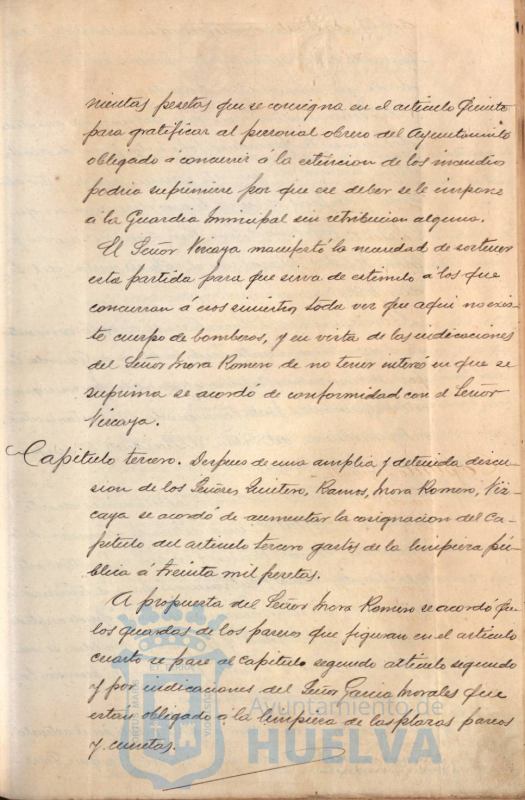 nientas pesetas que se consigna en el artículo Quinto
para gratificar al personal obrero del Ayuntamiento
obligado á concurrir á la estincion de los incendios
podria suprimirse por que ese deber se le impone
á la Guardia Municipal sin retribucion alguna.
El Señor Vizcaya manifestó la necesidad de sostener
esta partida para que sirva de estimulo á los que
concurran á esos siniestros toda vez que aqui no exis-
te cuerpo de bomberos, y en vista de las indicaciones
del Señor Mora Romero de no tener interés en que se
suprima se acordó de conformidad con el Señor
Vizcaya.
Capitulo tercero. Despues de una amplia y detenida discu-
sion de los Señores Quintero, Ramos, Mora Romero, Viz-
caya se acordó de aumentar la cosignacion del Ca-
pitulo del articulo tercero gastos de la limpieza pú-
blica á treinta mil pesetas.
A propuesta del Señor Mora Romero se acordó que
los guardas de los paseos que figuran en el articulo
cuarto se pase al capitulo segundo articulo segundo
y por indicaciones del Señor Garcia Morales que
estén obligado á la limpieza de las plazas paseos
y cunetas.
Ayuntamiento de
HUELVA